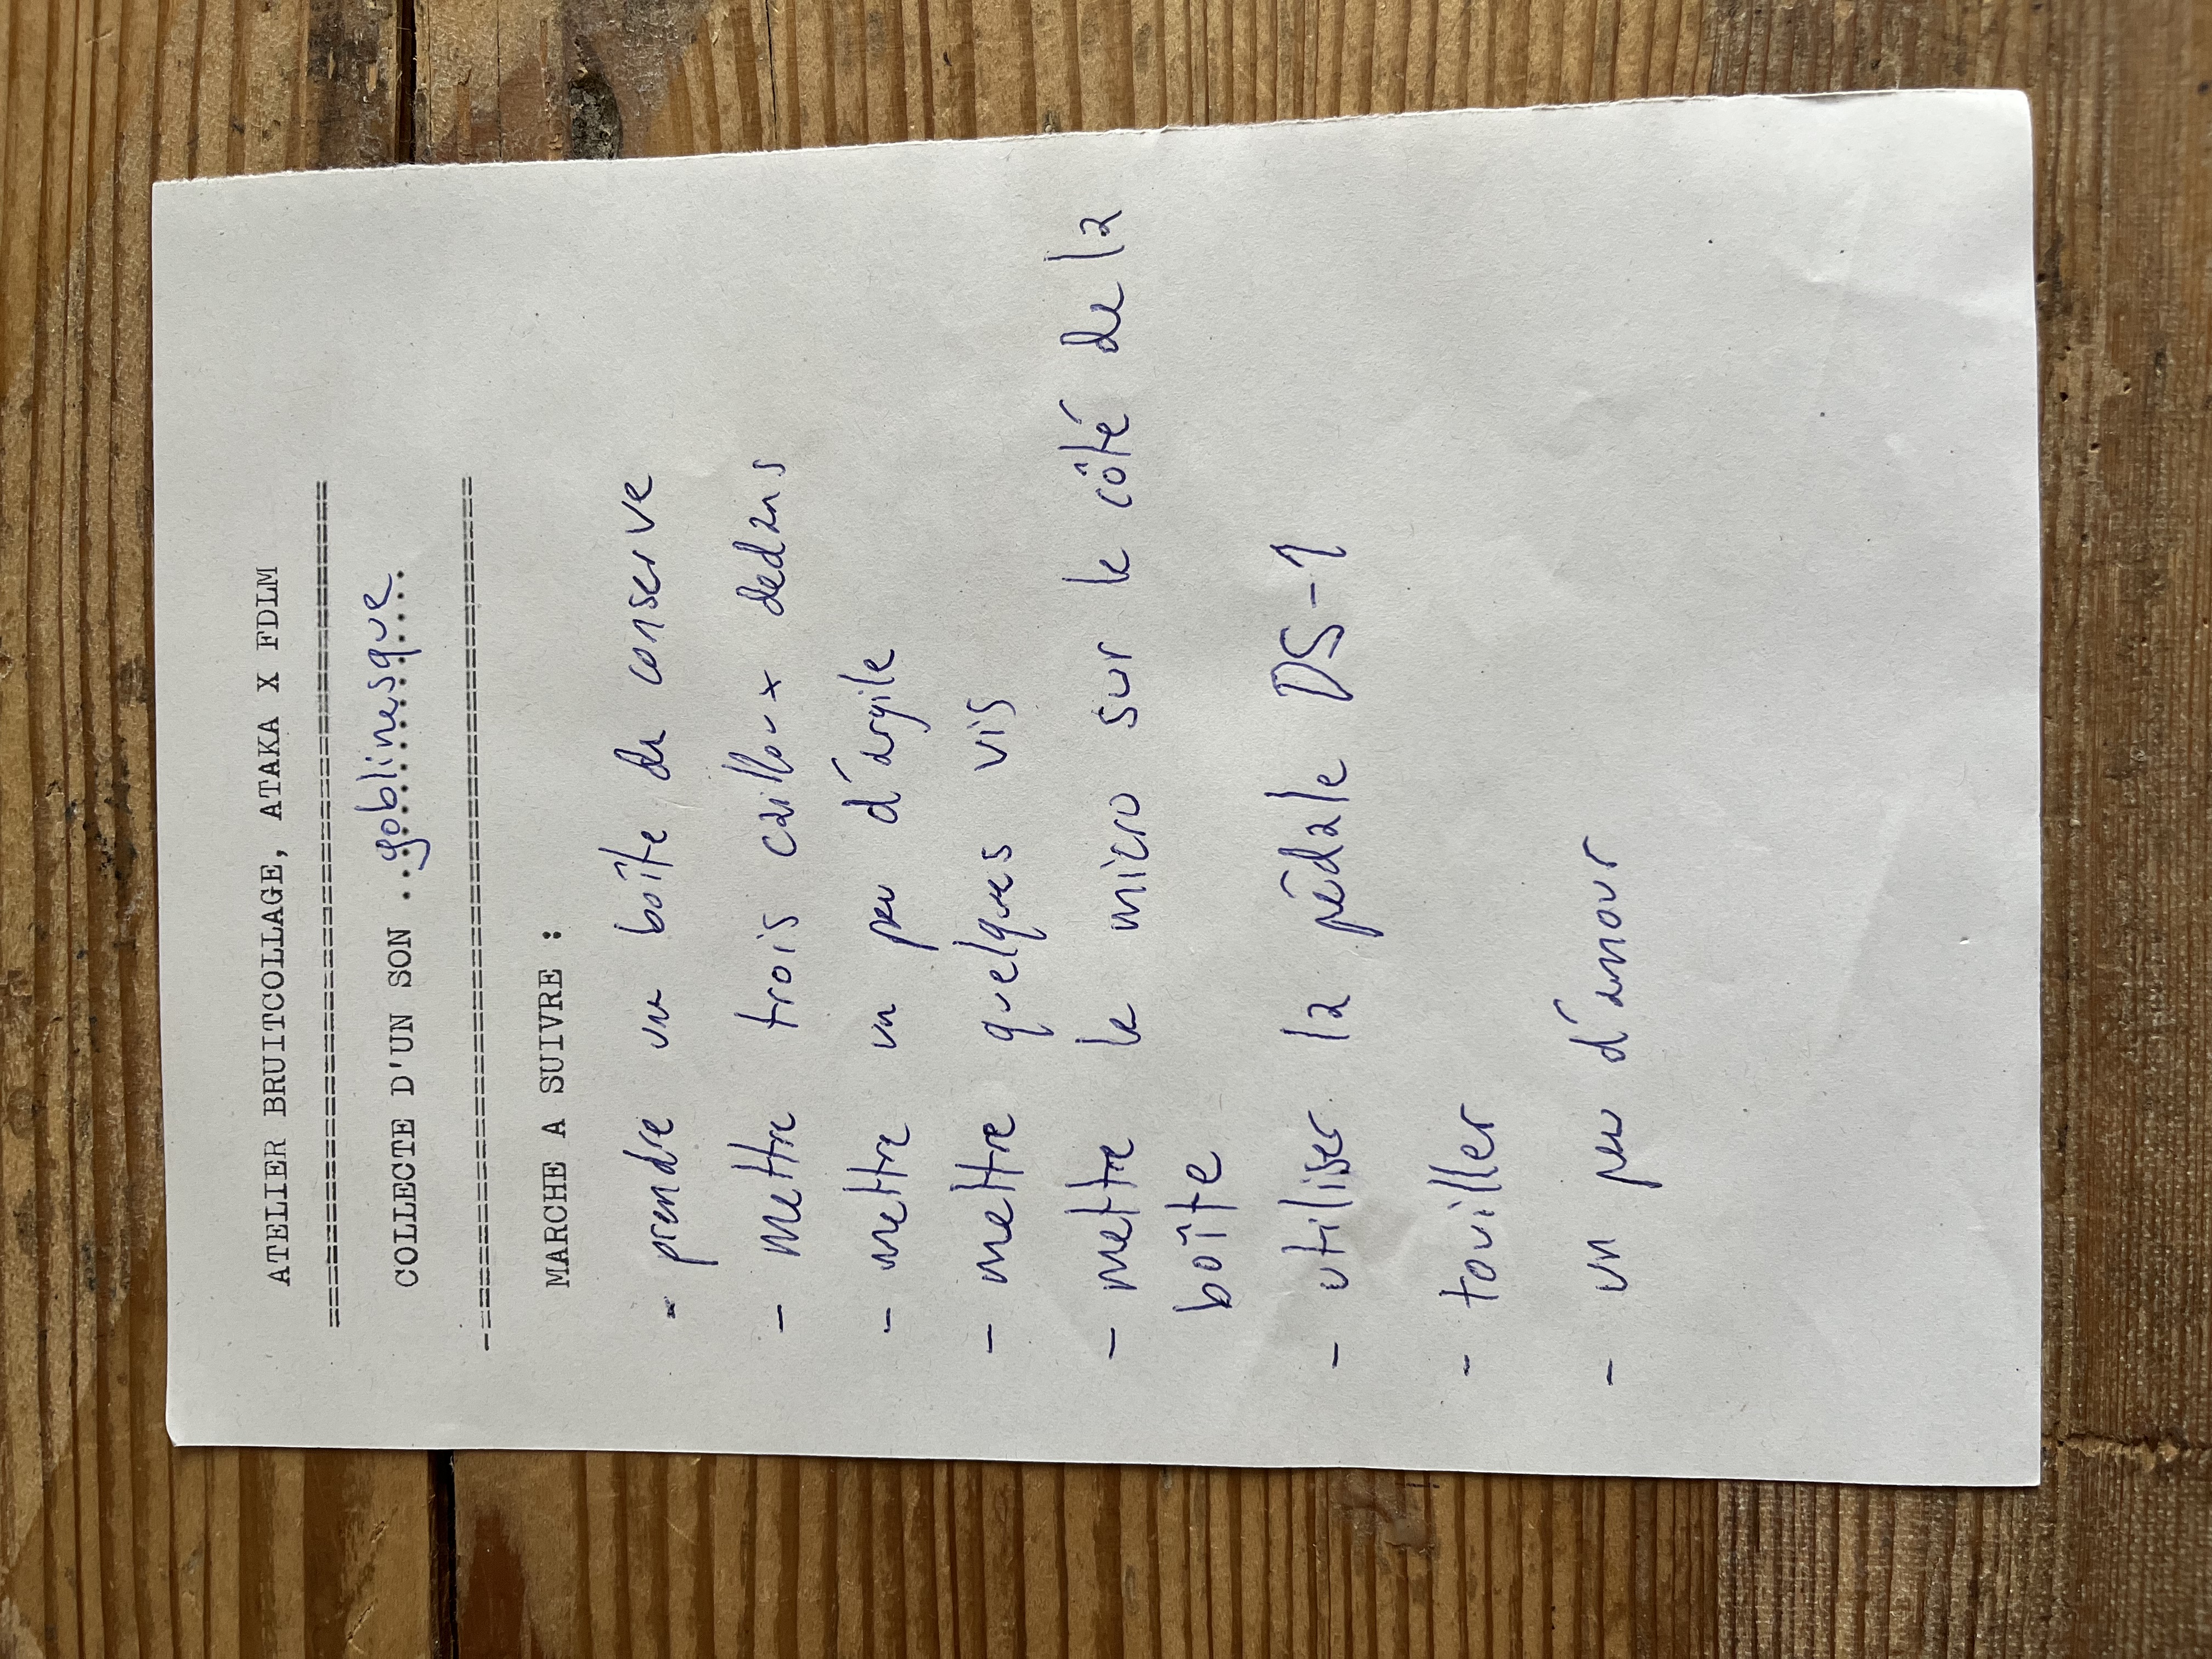 ATELIER BRUITCOLLAGE, ATAKA X FDLM
==============================================
COLLECTE D'UN SON ..goblinesque....
-==============================================
MARCHE A SUIVRE :
- prendre une boîte de conserve
- mettre trois cailloux dedans
- mettre un peu d'argile
- mettre quelques vis
- mettre le micro sur le côté de la
boîte
- utiliser la pédale DS-1
- touiller
- un peu d'amour